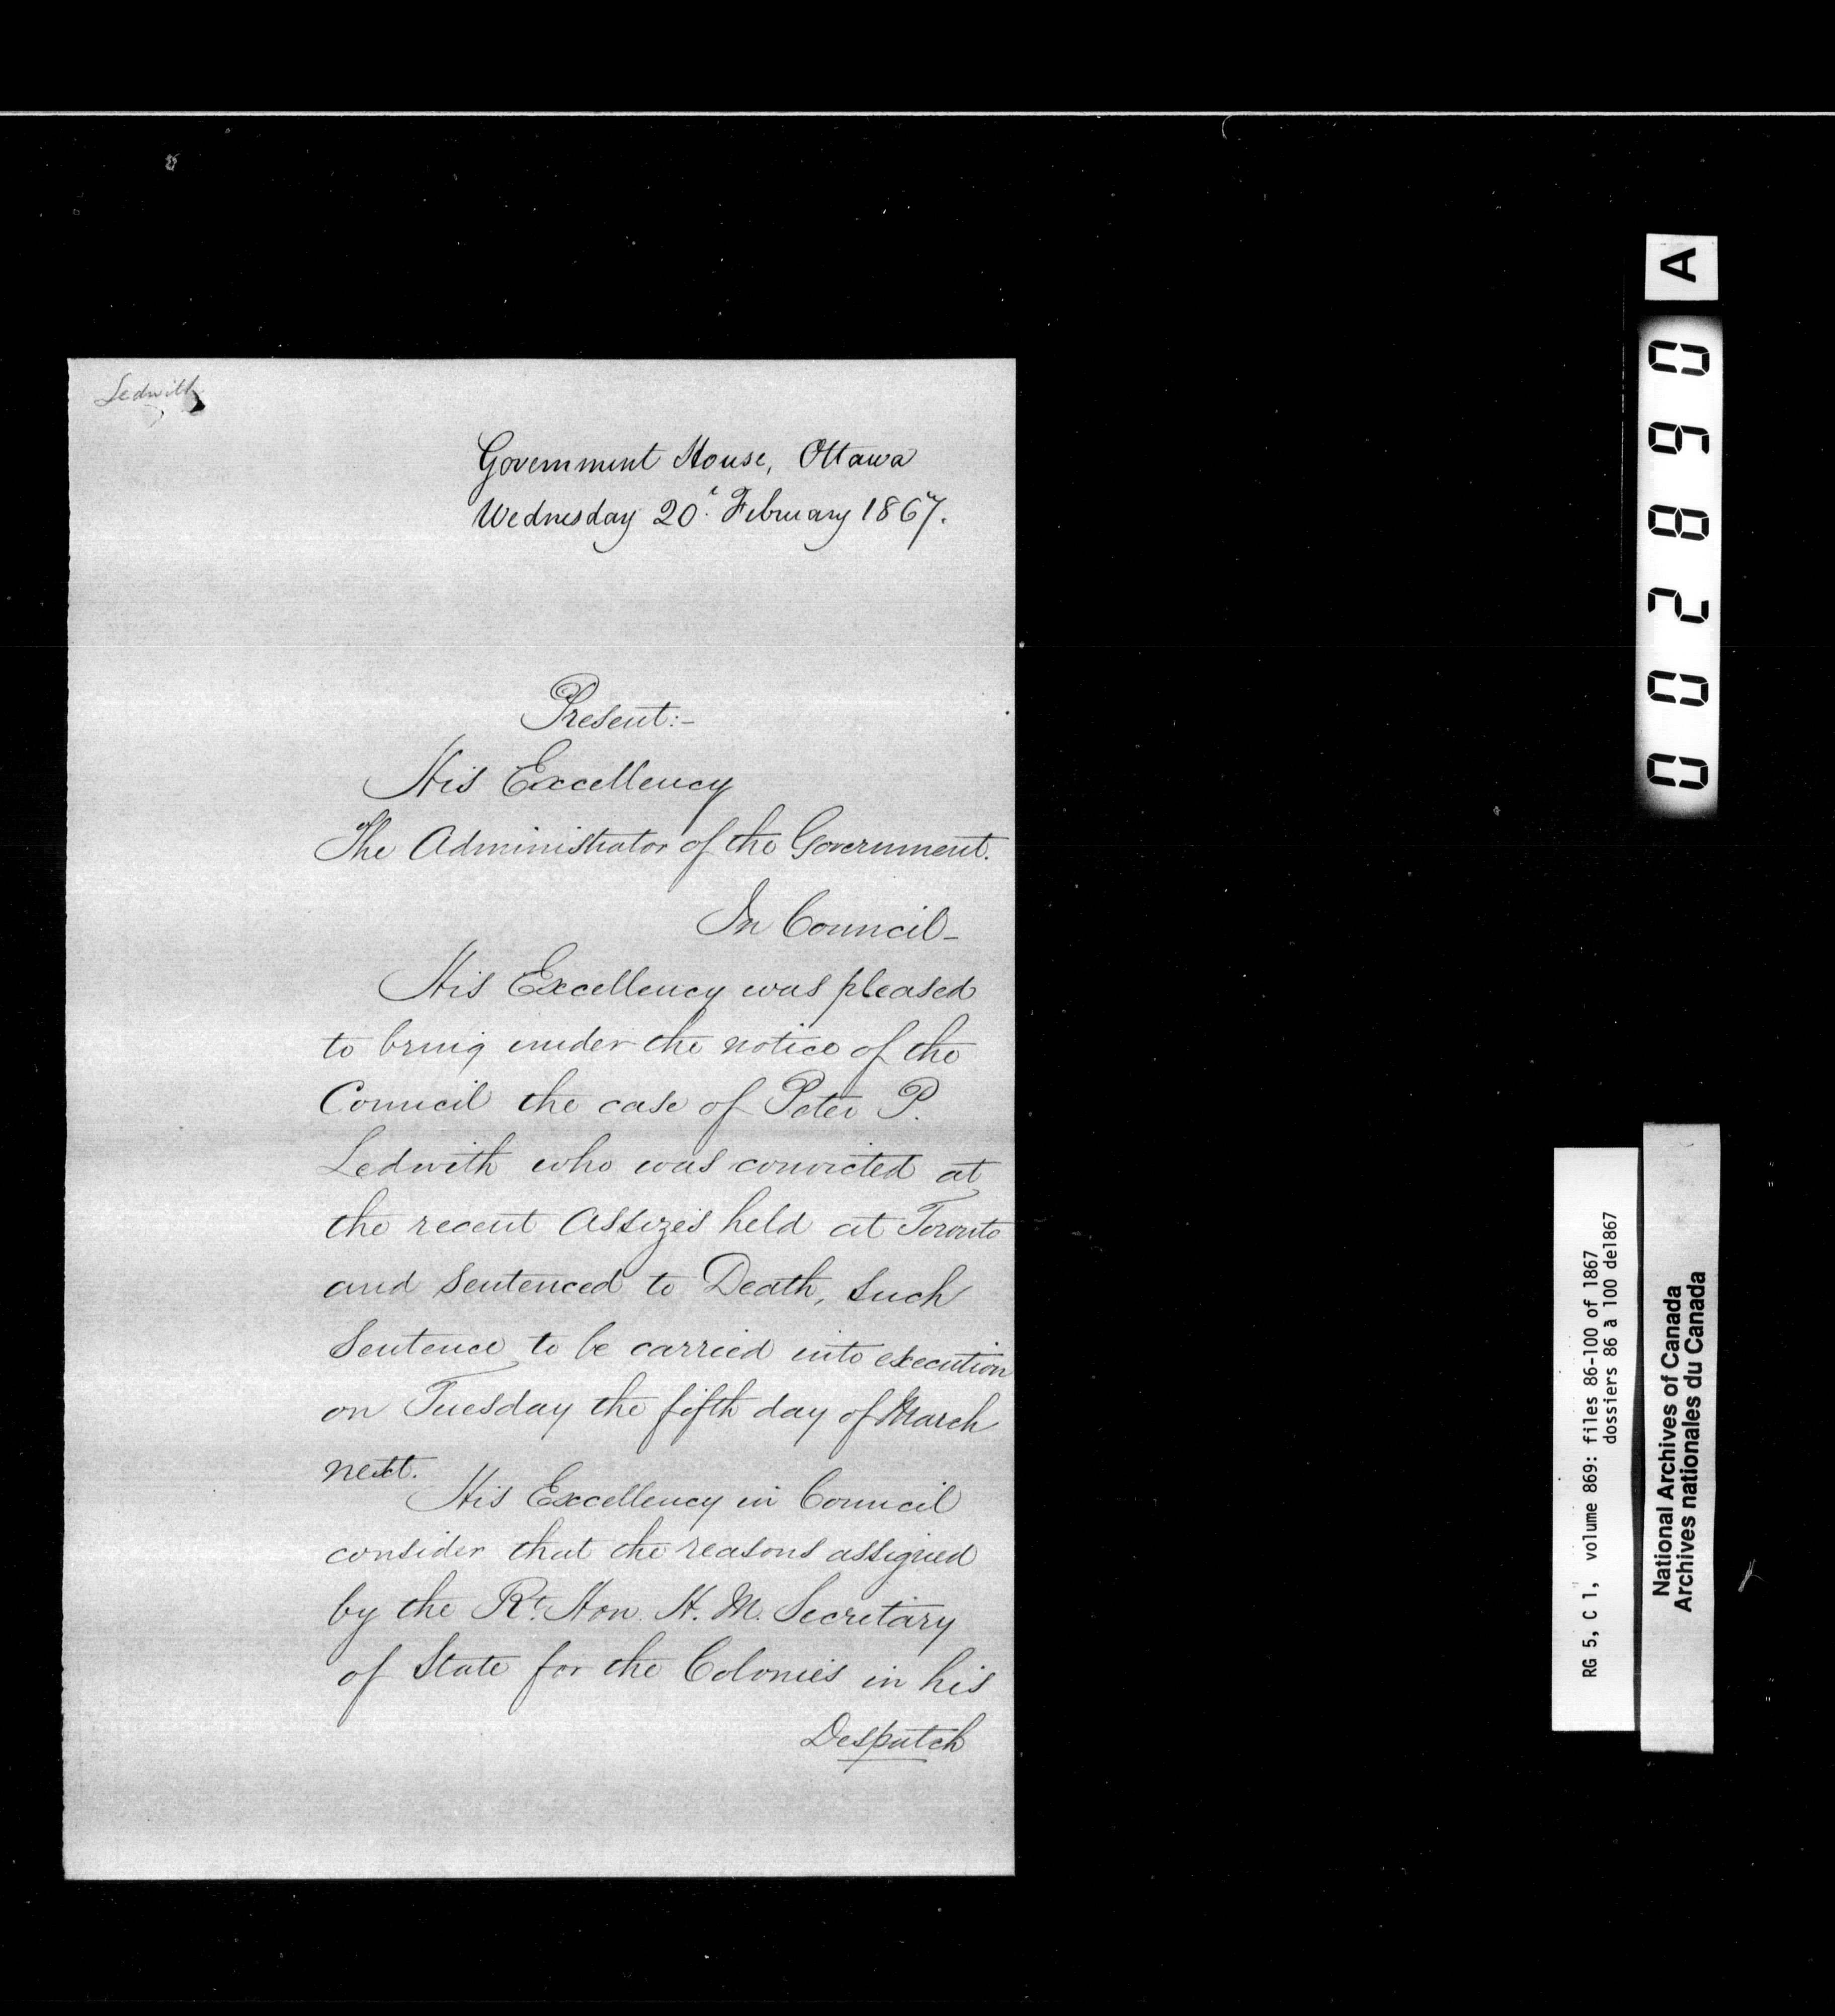 Ledwith
Government House, Ottawa
Wednesday 20t February 1867.
Present:-
His Excellency
The Administrator of the Government.
In Council-
His Excellency was pleased
to bring under the notice of the
Council the case of Peter P.
Ledwith who was convicted at
the recent Assizes held at Toronto
and Sentenced to Death, such
Sentence to be carried into execution
on Tuesday the fifth day of March
next.
His Excellency in Council
consider that the reasons assigned
by the Rt. Hon. H. M. Secretary
of State for the Colonies in his
Despatch
A
002890
RG 5, C 1, volume 869: files 86-100 of 1867
dossiers 86 à 100 de1867
National Archives of Canada
Archives nationales du Canada